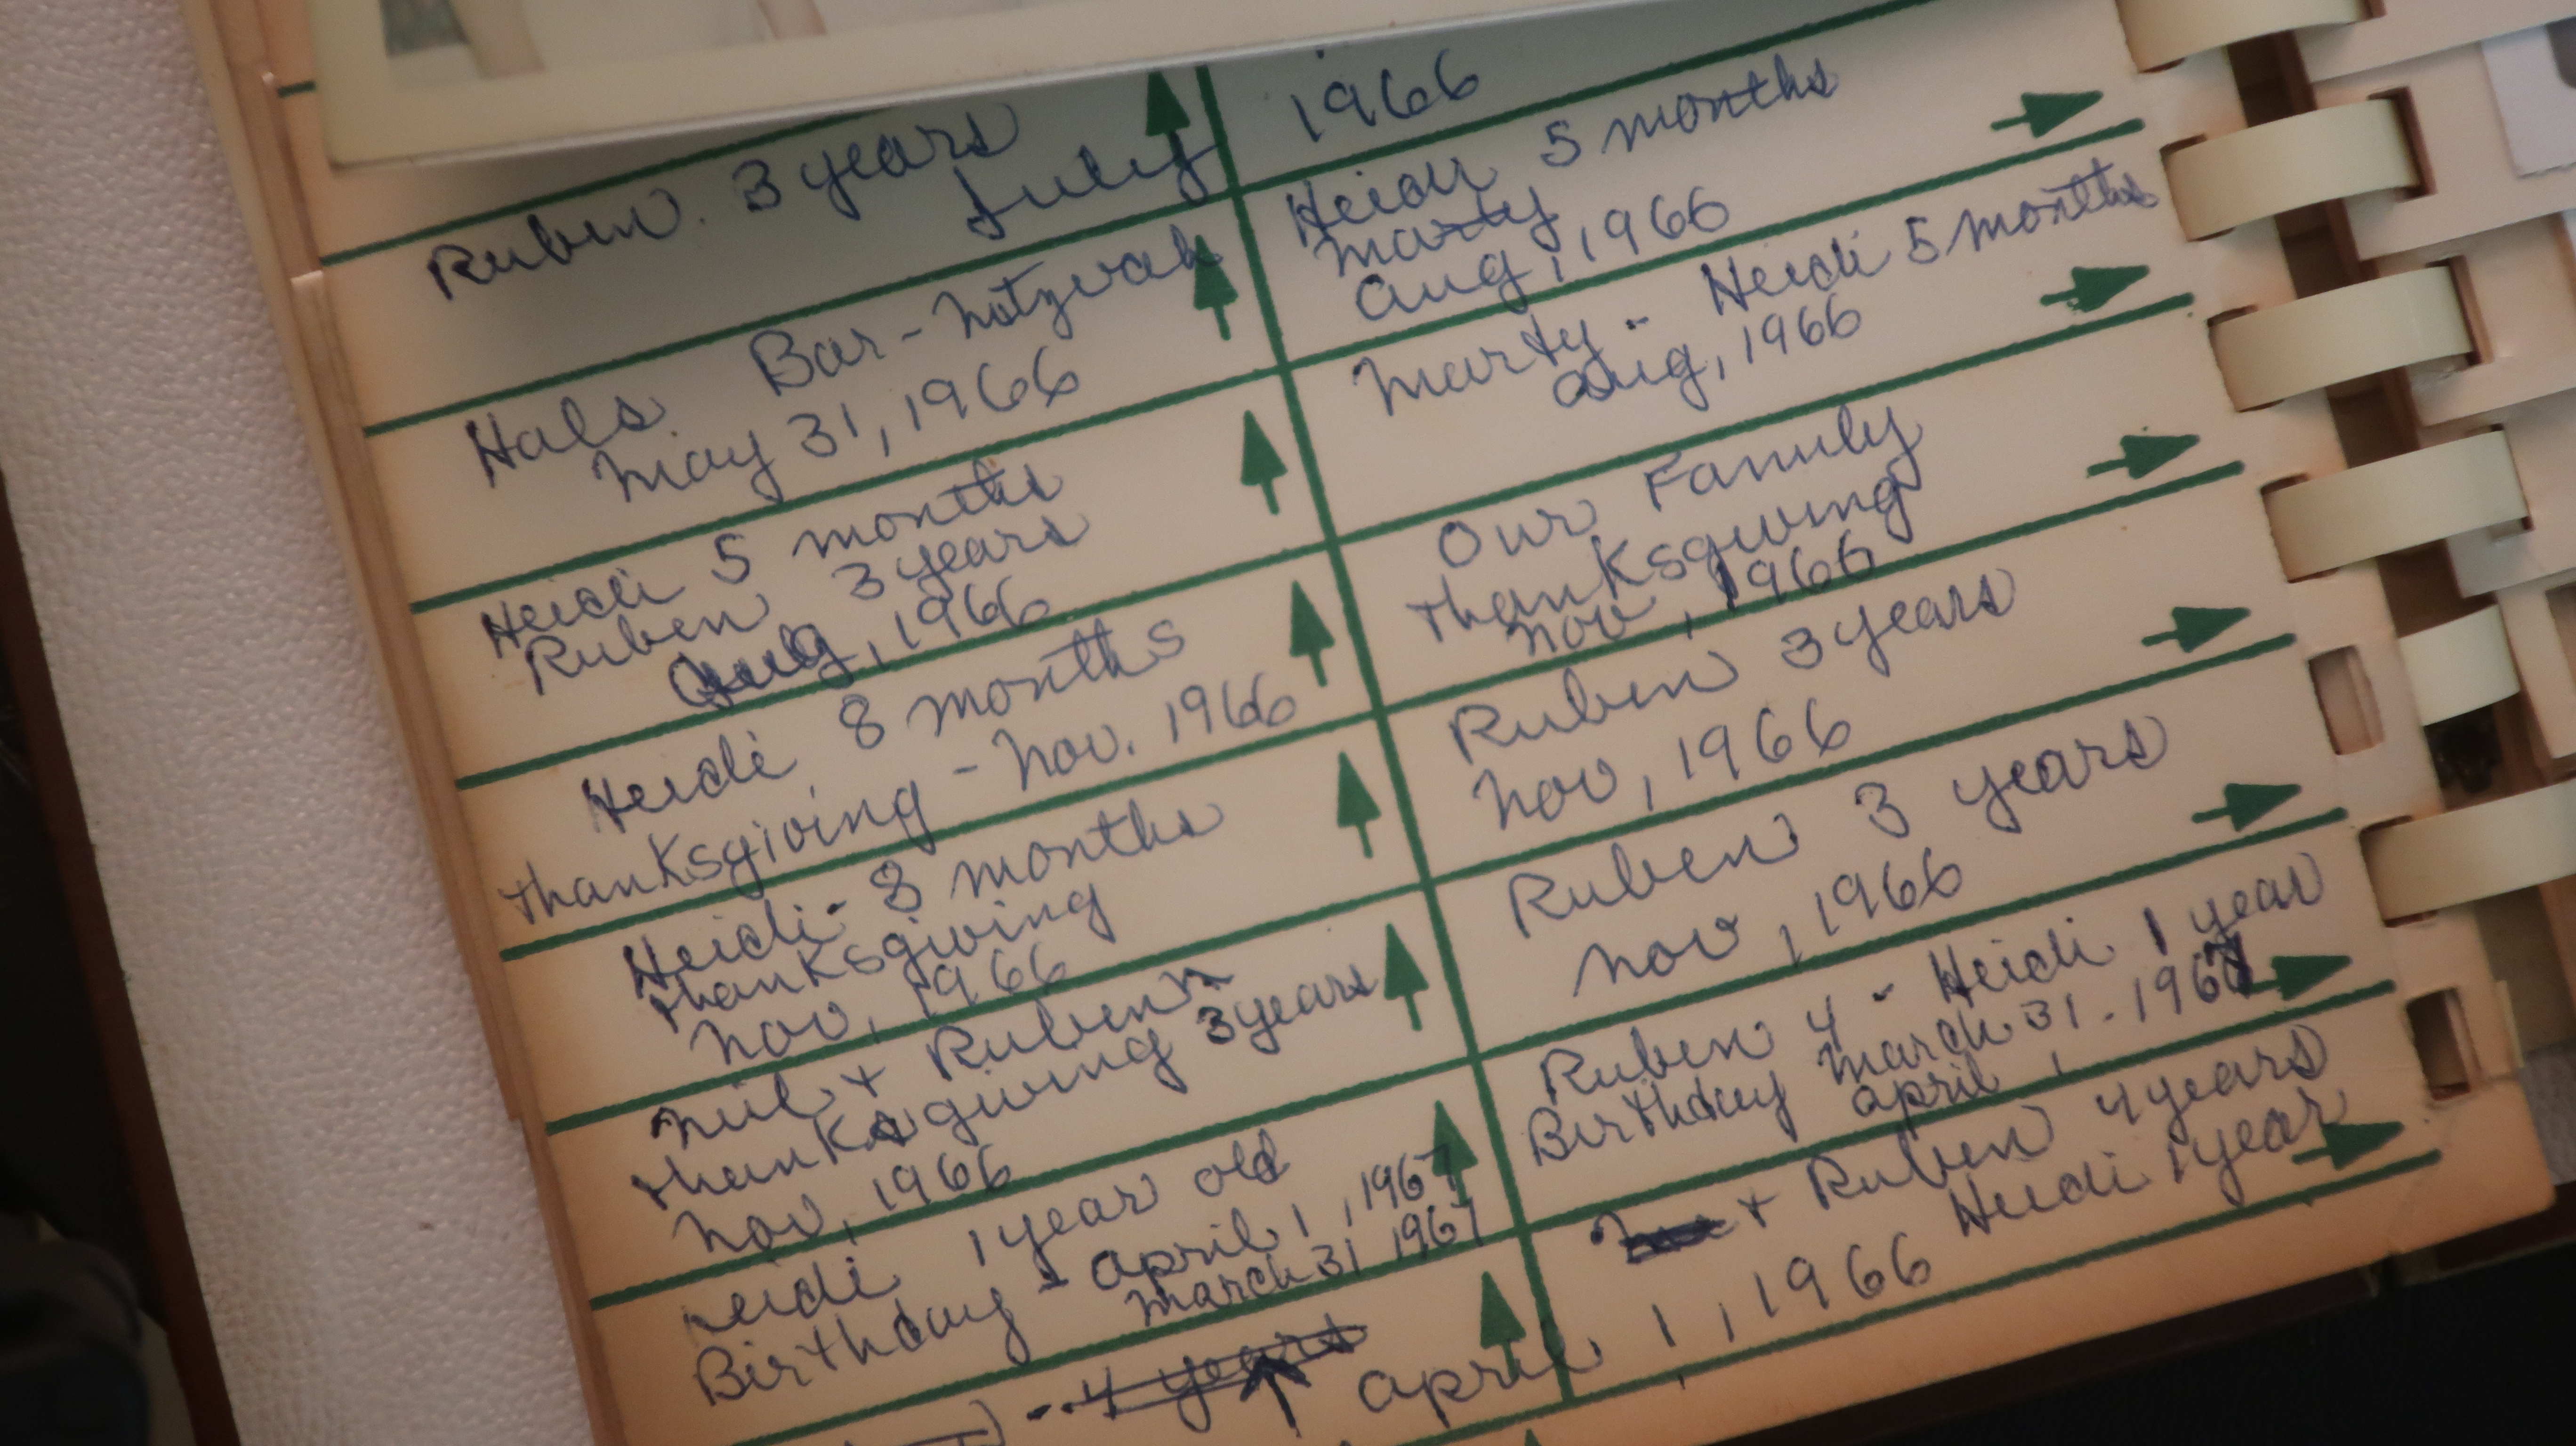 Ruben. 3 years
July
1966
Hals Bar-Mitzvah
May 31, 1966
Heidi 5 months
Marty
Aug, 1966
Heidi 5 months
Ruben 3 years
Aug, 1966
Marty - Heidi 5 months
Aug, 1966
Heidi 8 months
Thanksgiving - Nov. 1966
Our Family
Thanksgiving
Nov, 1966
Heidi - 8 months
Thanksgiving
Nov, 1966
Ruben 3 years
Nov, 1966
+ Ruben
Thanksgiving 3 years
Nov, 1966
Ruben 3 years
Nov, 1966
Heidi 1 year old
Birthday - April 1, 1967
March 31 1967
Ruben 4 - Heidi 1 year
Birthday March 31. 1967
April 1
4 years
+ Ruben 4 years
Heidi 1 year
April 1, 1966